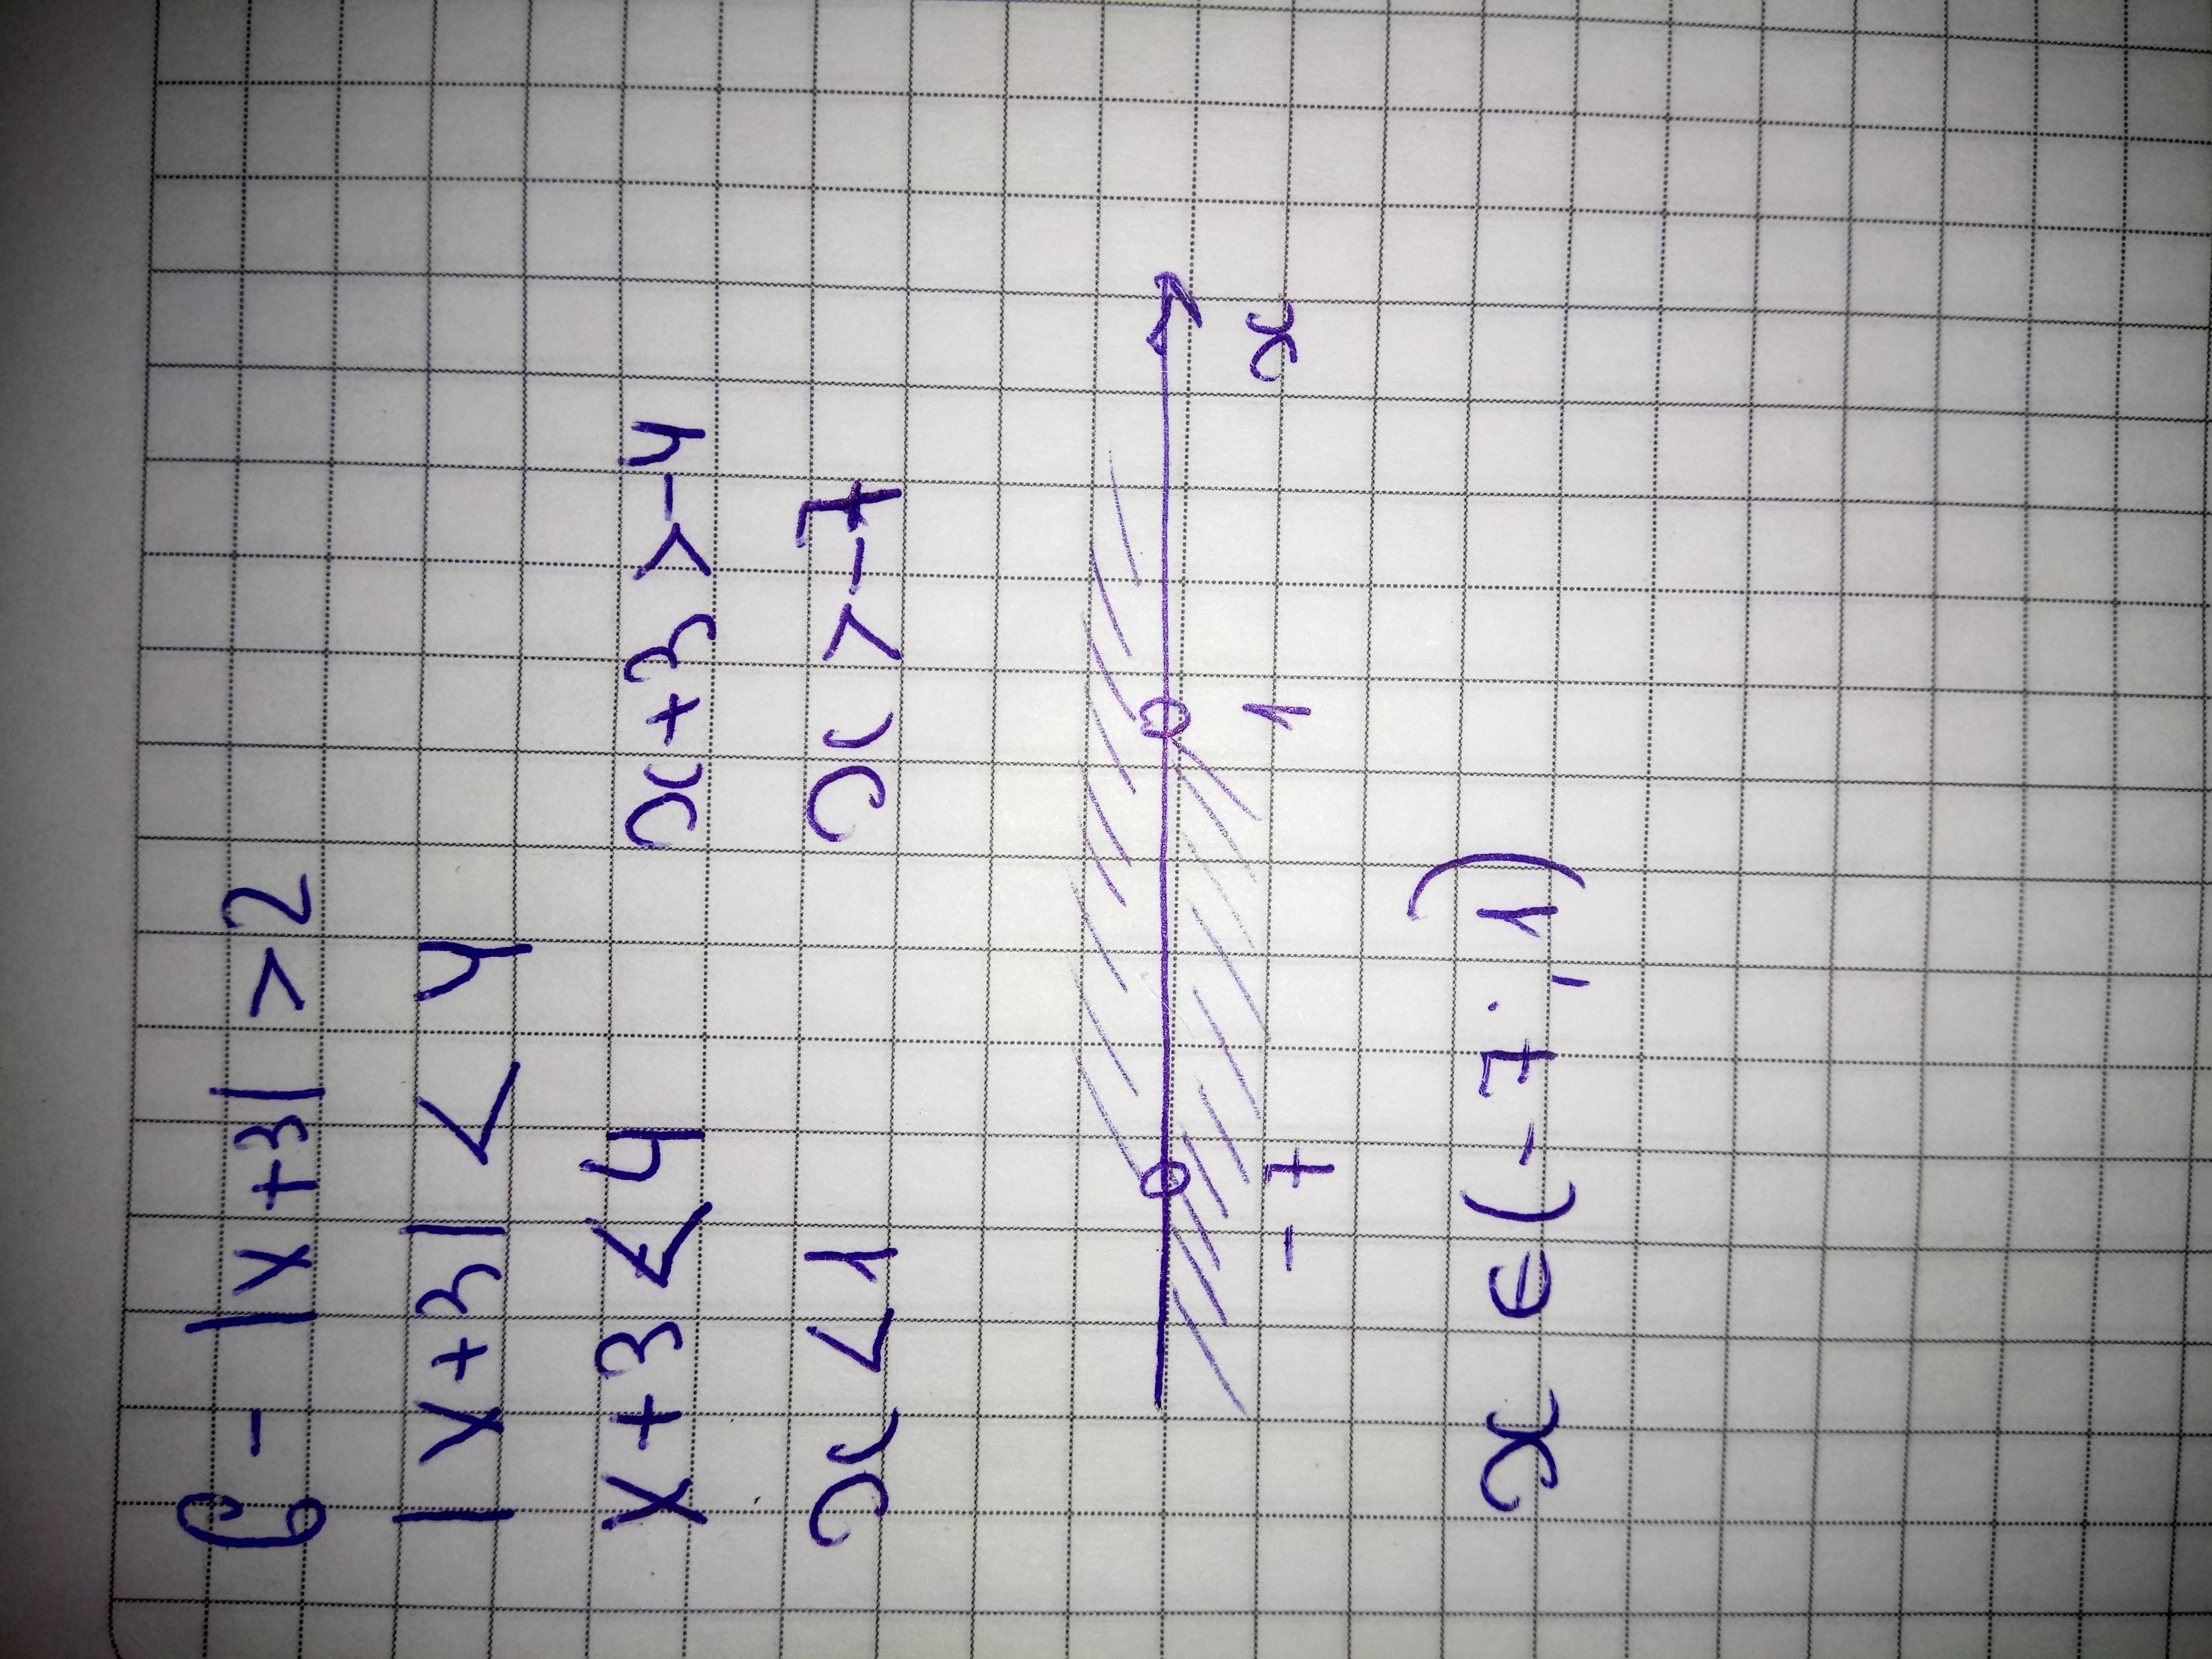 6 - |x+3| > 2
|x+3| < 4
x+3 < 4 x+3 > -4
x < 1 x > -7
-7 1 x
x ∈ (-7; 1)